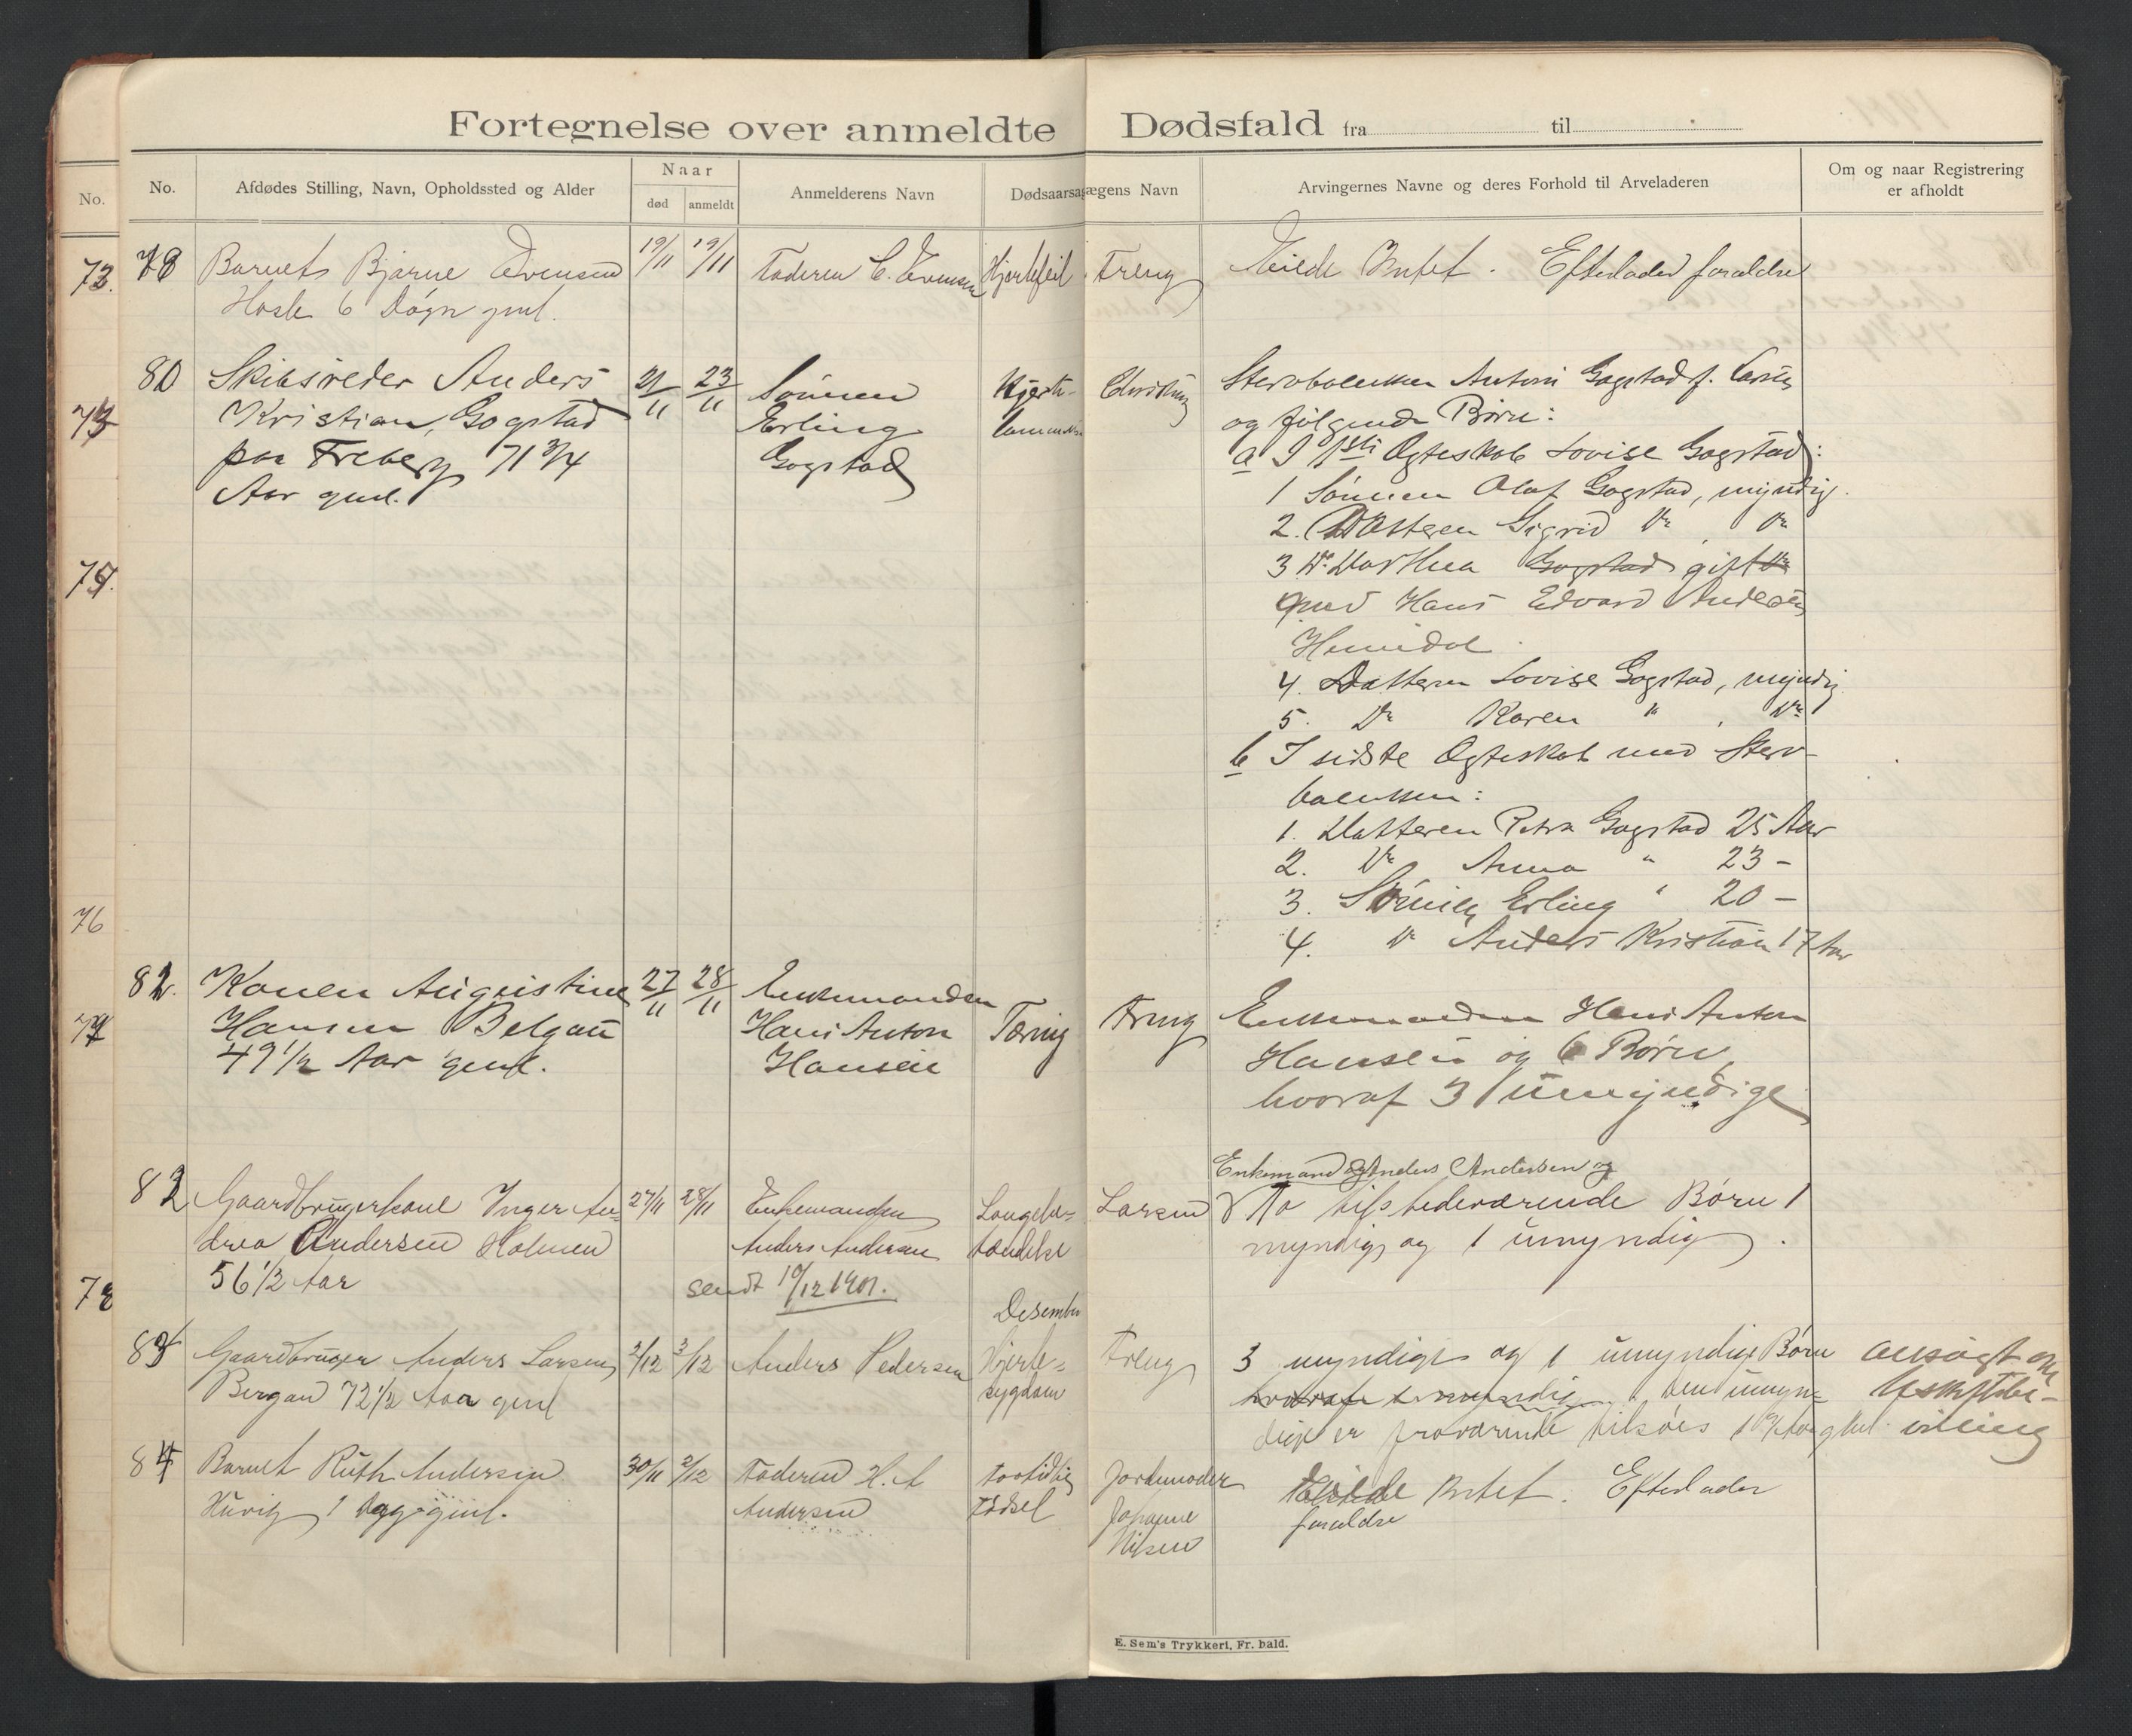 Fortegnelse over anmeldte Dødsfald fra til
No.
No.
Afdødes Stilling, Navn, Opholdssted og Alder
Naar
død
anmeldt
Anmelderens Navn
Dødsaarsa
ægens Navn
Arvingernes Navne og deres Forhold til Arveladeren
Om og naar Registrering
er afholdt
73.
75
76
78
Barnet Bjarne Evensen
6 Døgn gml.
19/11
19/11
Faderen C. Evensen
Hjertefeil
Freng
Eiede Intet. Efterlader forældre
80
Skibsreder Anders
Kristian Gogstad
paa Freberg 71 3/4
Aar gml.
21/11
23/11
Sønnen
Erling
Gogstad
Hjerte-
og følgende Børn:
a I 1ste Ægteskab Lovise Gogstad:
1 Sønnen Olaf Gogstad, myndig.
2. Datteren Sigrid Do, Do
3 Do Dorthea Gogstad gift
med Hans Edvard Andersen
4. Datteren Lovise Gogstad, myndig.
5. Do Karen " , Do
b I sidste Ægteskab med Sterv-
boenken:
1. Datteren Petra Gogstad 25 Aar
2. Do Anna " 23 -
3. Sønnen Erling " 20 -
4. Do Anders Kristian 17 Aar
82.
Konen Augustine
Hansen Belgau
49 1/2 Aar gml.
27/11
28/11
Enkemanden
Hans Anton
Hansen
Tæring
Freng
Enkemanden Hans Anton
Hansen og 6 Børn,
hvoraf 3 umyndige
82
Gaardbrugerkone Inger An-
drea Andersen Holmen
56 1/2 Aar
27/11
28/11
Enkemanden
Anders Andersen
Lungebe-
tændelse
Larsen
Enkemand Anders Andersen og
To tilstedeværende Børn 1
myndig og 1 umyndig.
sendt 10/12 1901.
Desember
83
Gaardbruger Anders Larsen
Bergan 72 1/2 Aar gml
2/12
3/12
Anders Pedersen
Hjerte-
sygdom
Freng
3 myndige og 1 umyndige Børn
den umyn-
dige er fraværende tilsøes
ansøgt om
villing
84
Barnet Ruth Andersen
1 Dag gml.
30/11
2/12
Faderen H. A
Andersen
Fortidlig
Fødsel
Jordemoder
Johanne
Nilsen
Eiede Intet. Efterlader
forældre
E. Sem's Trykkeri, Fr. hald.